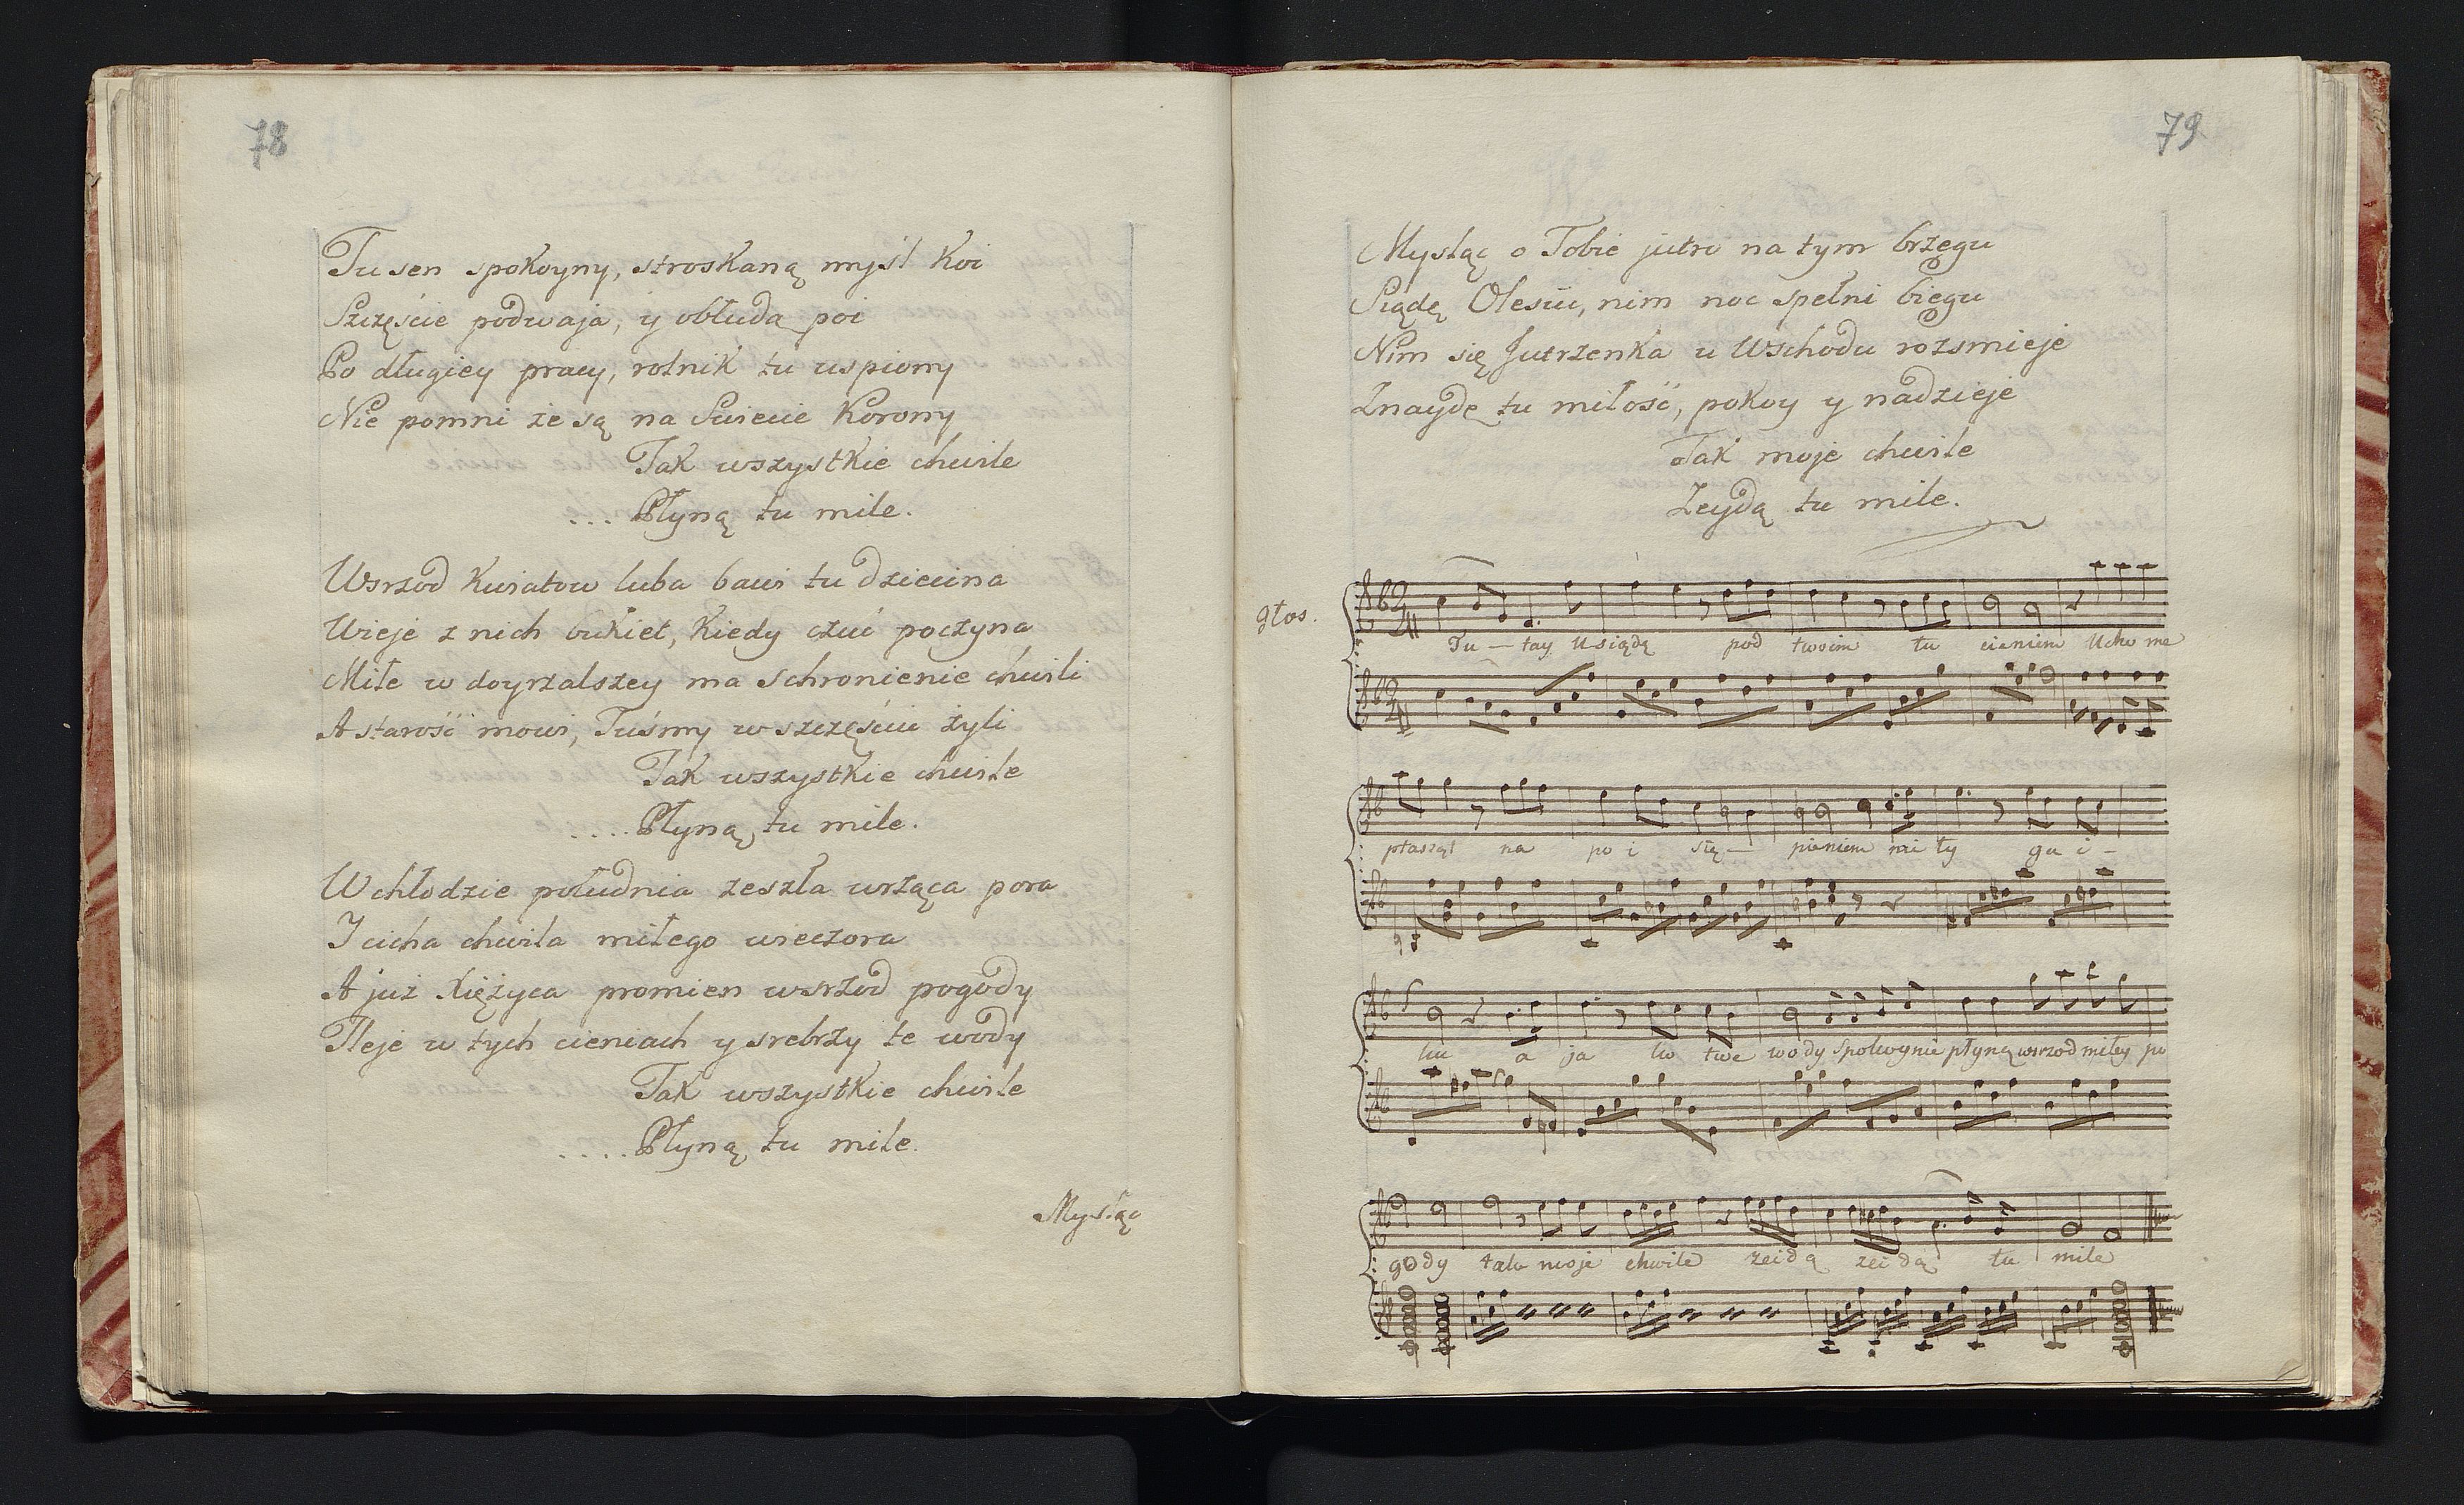 78
Tu sen spokoyny, stroskaną myśl koi
Szczęście podwaja, y obłudą poi
Po długiey pracy, rolnik tu uspiony
Nie pomni że są na Swiecie Korony
Tak wszystkie chwile
... Płyną tu mile.
Wsrzod kwiatow luba bawi tu dziecina
Wieje z nich bukiet, kiedy czuć poczyna
Miłe w doyrzalszey ma schronienie chwili
A starość mowi, Tuśmy w szczęściu żyli
Tak wszystkie chwile
.... Płyną tu mile.
W chłodzie południa zeszła wrząca pora
I cicha chwila miłego wieczora
A już Xiężyca promien wsrzod pogody
Tleje w tych cieniach y srebrzy te wody
Tak wszystkie chwile
.... Płyną tu mile.
Mysląc
79
Mysląc o Tobie jutro na tym brzegu
Siądę Olesiu, nim noc spełni biegu
Nim się Jutrzenka u Wschodu rozsmieje
Znaydę tu miłość, pokoy y nadzieje
Tak moje chwile
Zeydą tu mile.
głos.
Tu — tay Usiądę pod twoim tu cieniem Ucho me
ptasząt na po i się — pieniem mi ły ga i -
ku a ja ko twe wody spokoynie płyną wsrzod miłey po
gody tak moje chwile zeidą zei dą tu mile